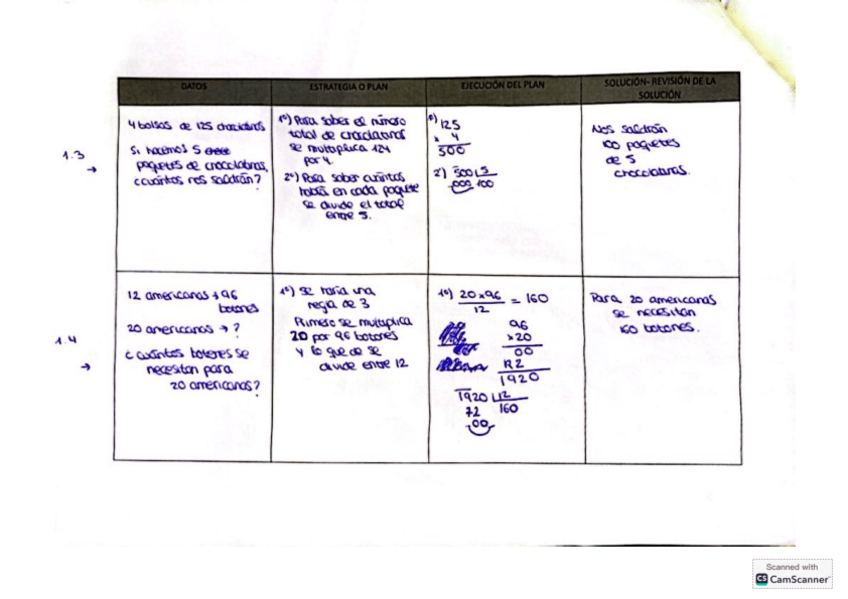 DATOS
ESTRATEGIA O PLAN
EJECUCIÓN DEL PLAN
SOLUCIÓN- REVISIÓN DE LA
SOLUCIÓN
1.3
→
4 bolsas de 125 chocolatinas
Si hacemos 5
paquetes de chocolatinas,
¿cuántos nos saldrán?
1º) Para saber el número
total de chocolatinas
se multiplica 124
por 4.
2º) Para saber cuántas
habrá en cada paquete
se divide el total
entre 5.
1º) 125
x 4
500
2º) 500 5
000 100
Nos saldrán
100 paquetes
de 5
chocolatinas.
1.4
→
12 americanas → 96
botones
20 americanas → ?
¿Cuántos botones se
necesitan para
20 americanas?
1º) Se haría una
regla de 3
Primero se multiplica
20 por 96 botones
y lo que de se
divide entre 12
1º) 20 x 96 = 160
12
96
x 20
00
192
1920
1920 12
72 160
00
Para 20 americanas
se necesitan
160 botones.
Scanned with
CS CamScanner